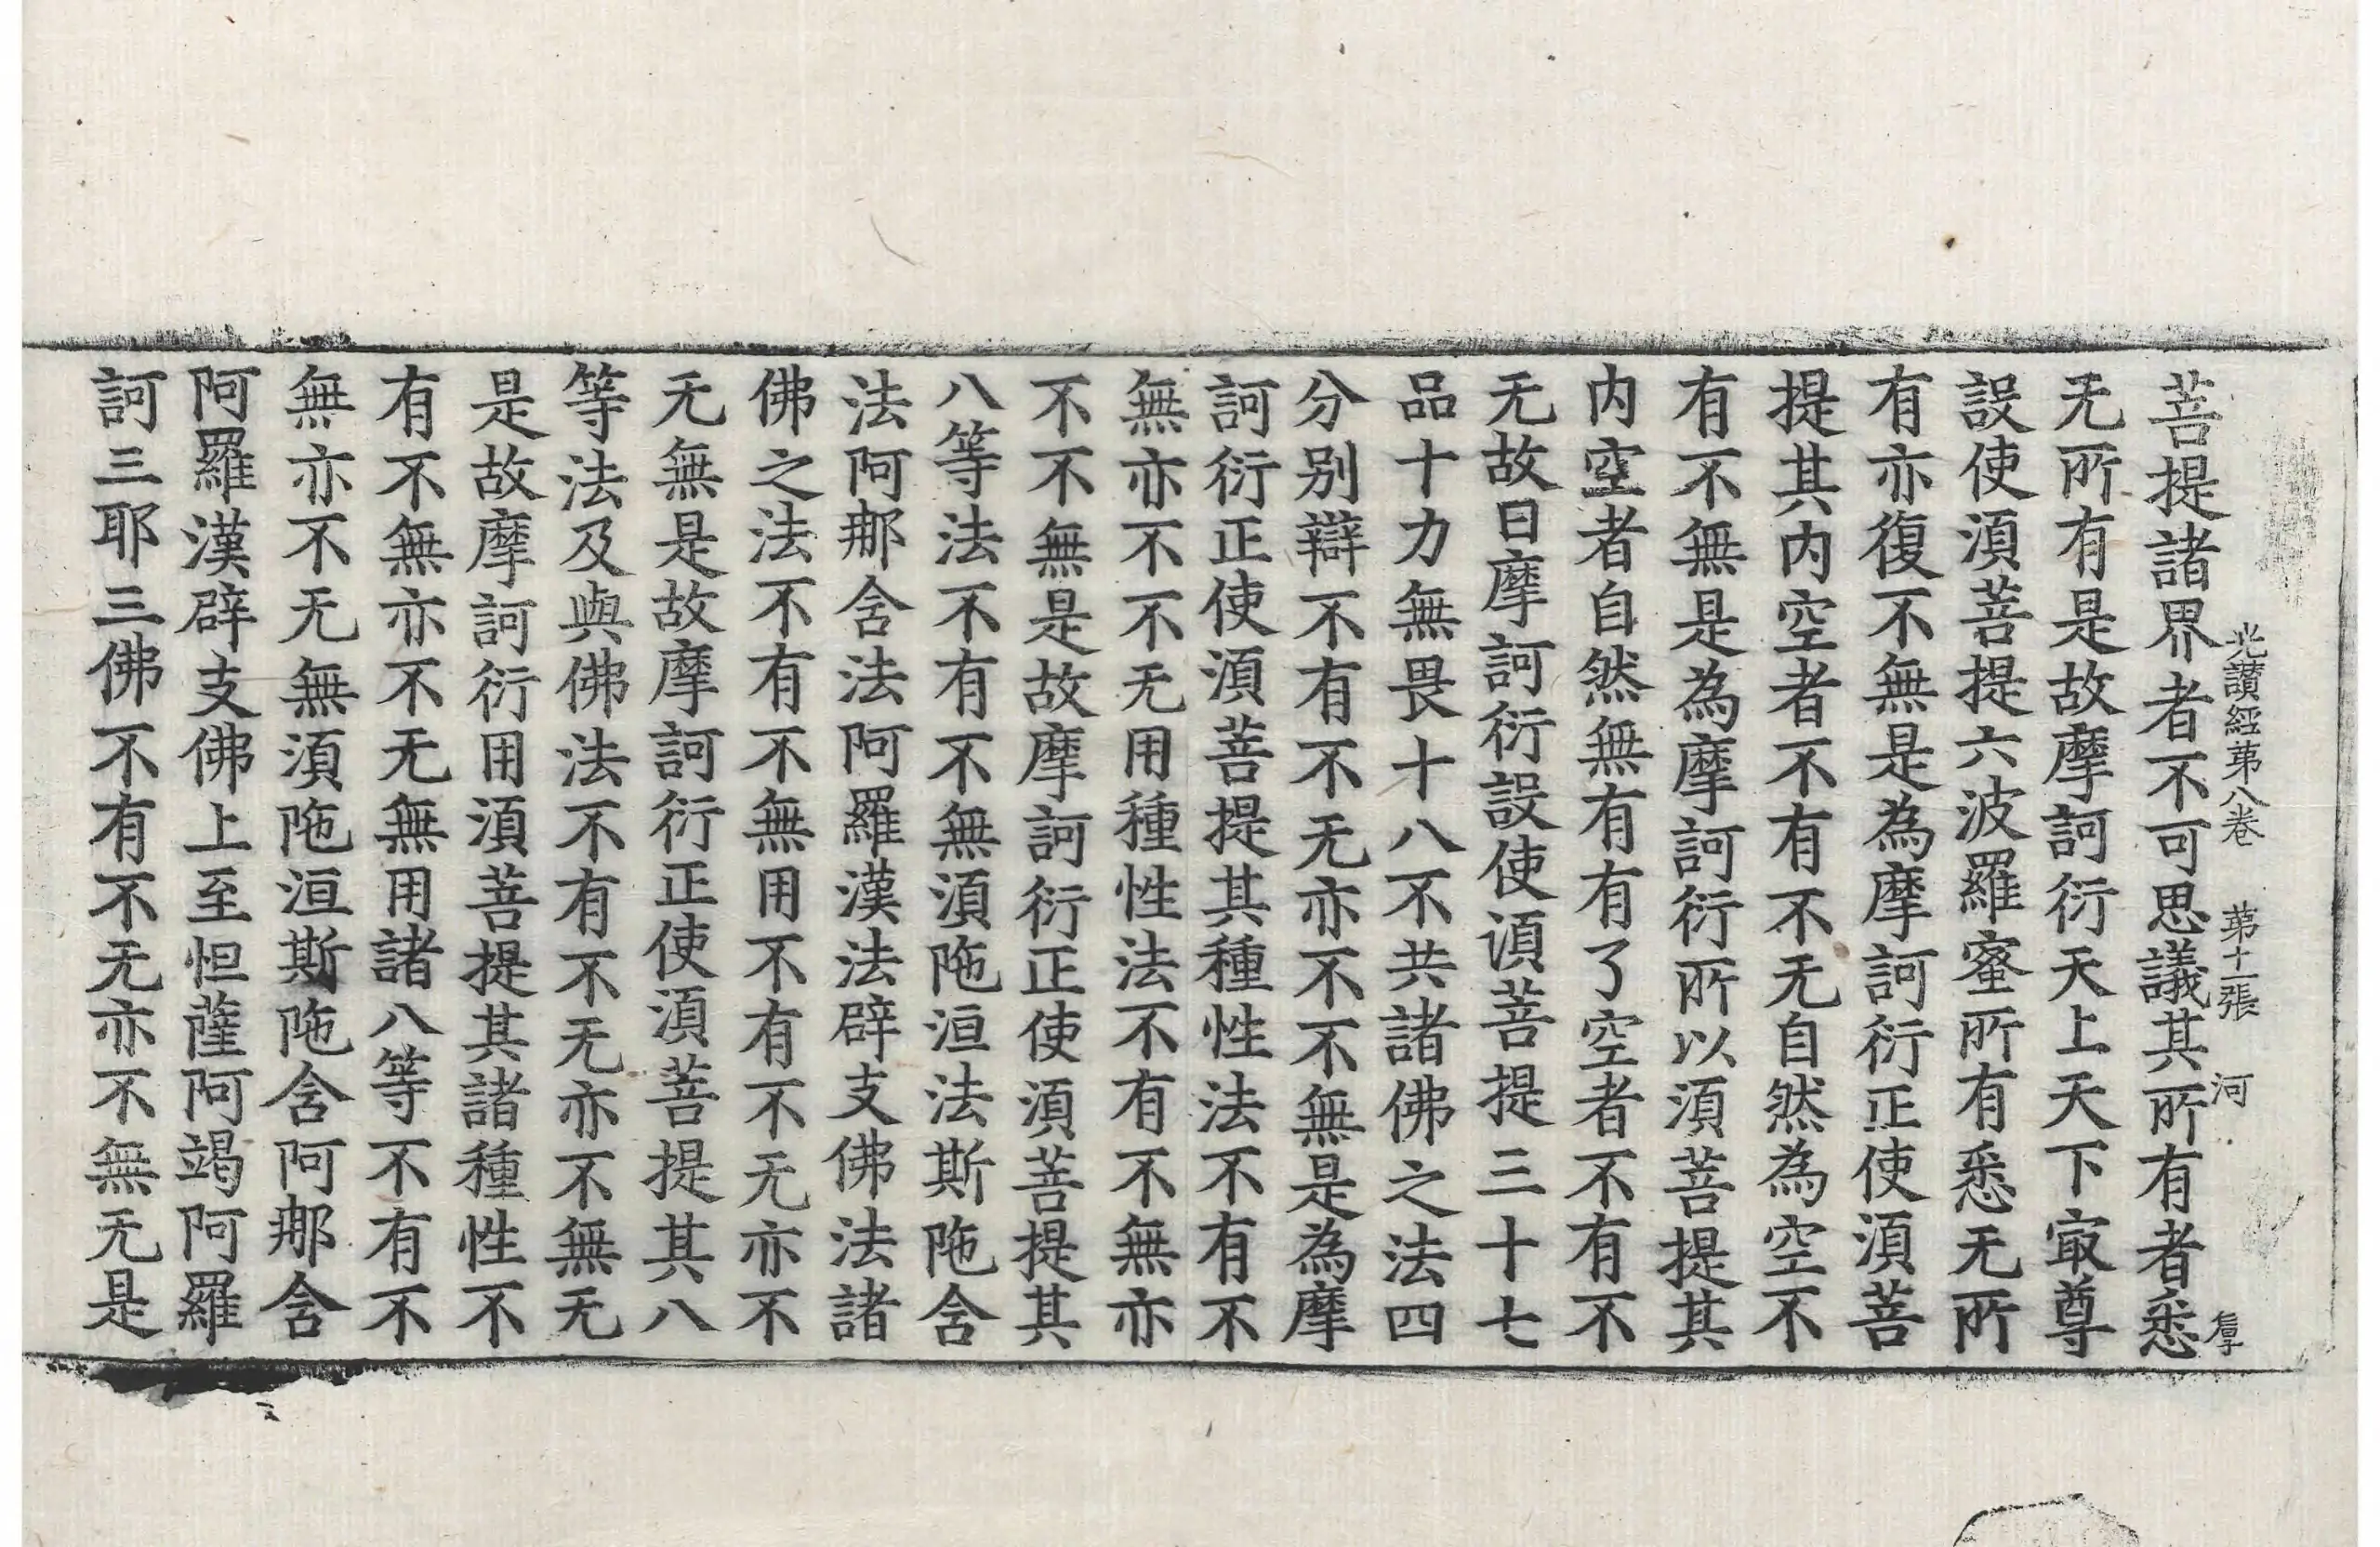 光讃經苐八卷 苐十一張 河
菩提諸界者不可思議其所有者悉
无所有是故摩訶衍天上天下㝡尊
設使湏菩提六波羅蜜所有悉无所
有亦復不無是為摩訶衍正使湏菩
提其内空者不有不无自然為空不
有不無是為摩訶衍所以湏菩提其
内空者自然無有有了空者不有不
无故曰摩訶衍設使湏菩提三十七
品十力無畏十八不共諸佛之法四
分别辯不有不无亦不不無是為摩
訶衍正使湏菩提其種性法不有不
無亦不不无用種性法不有不無亦
不不無是故摩訶衍正使湏菩提其
八等法不有不無湏陁洹法斯陁含
法阿那含法阿羅漢法辟支佛法諸
佛之法不有不無用不有不无亦不
无無是故摩訶衍正使湏菩提其八
等法及與佛法不有不无亦不無无
是故摩訶衍用湏菩提其諸種性不
有不無亦不无無用諸八等不有不
無亦不无無湏陁洹斯陁含阿那含
阿羅漢辟支佛上至怛薩阿竭阿羅
訶三耶三佛不有不无亦不無无是